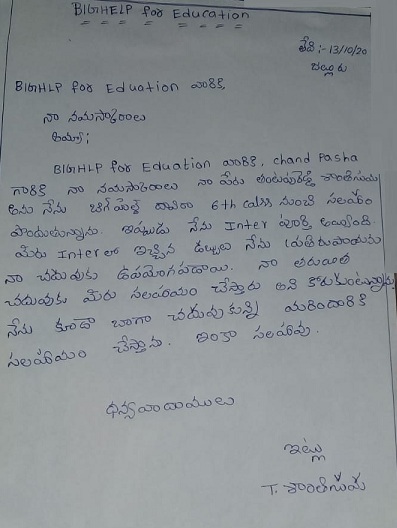 BIGHELP for Education
తేది :- 13/10/20
BIGHLP for Eduation వారికి,
నా నమస్కారాలు
అయ్యా;
BIGHLP for Eduation వారికి, chand Pasha
గారికి నా నమస్కారాలు నా పేరు
అను నేను బిగ్ హెల్ప్ ద్వారా 6th calss నుంచి సహాయం
పొందుతున్నాను. ఇప్పుడు నేను Inter పూర్తి అయ్యింది.
మీరు Inter లో ఇచ్చిన డబ్బులు నేను
నా చదువుకు ఉపయోగపడాయి. నా తరువాత
చదువుకు మీరు సహాయం చేస్తారు అని కోరుకుంటున్నాను
నేను కూడా బాగా చదువుకున్ని మరిందారికి
సహాయం చేస్తాను. ఇంకా సెలవు.
ధన్యవాదాములు
ఇట్లు
T. శాంతికుమ